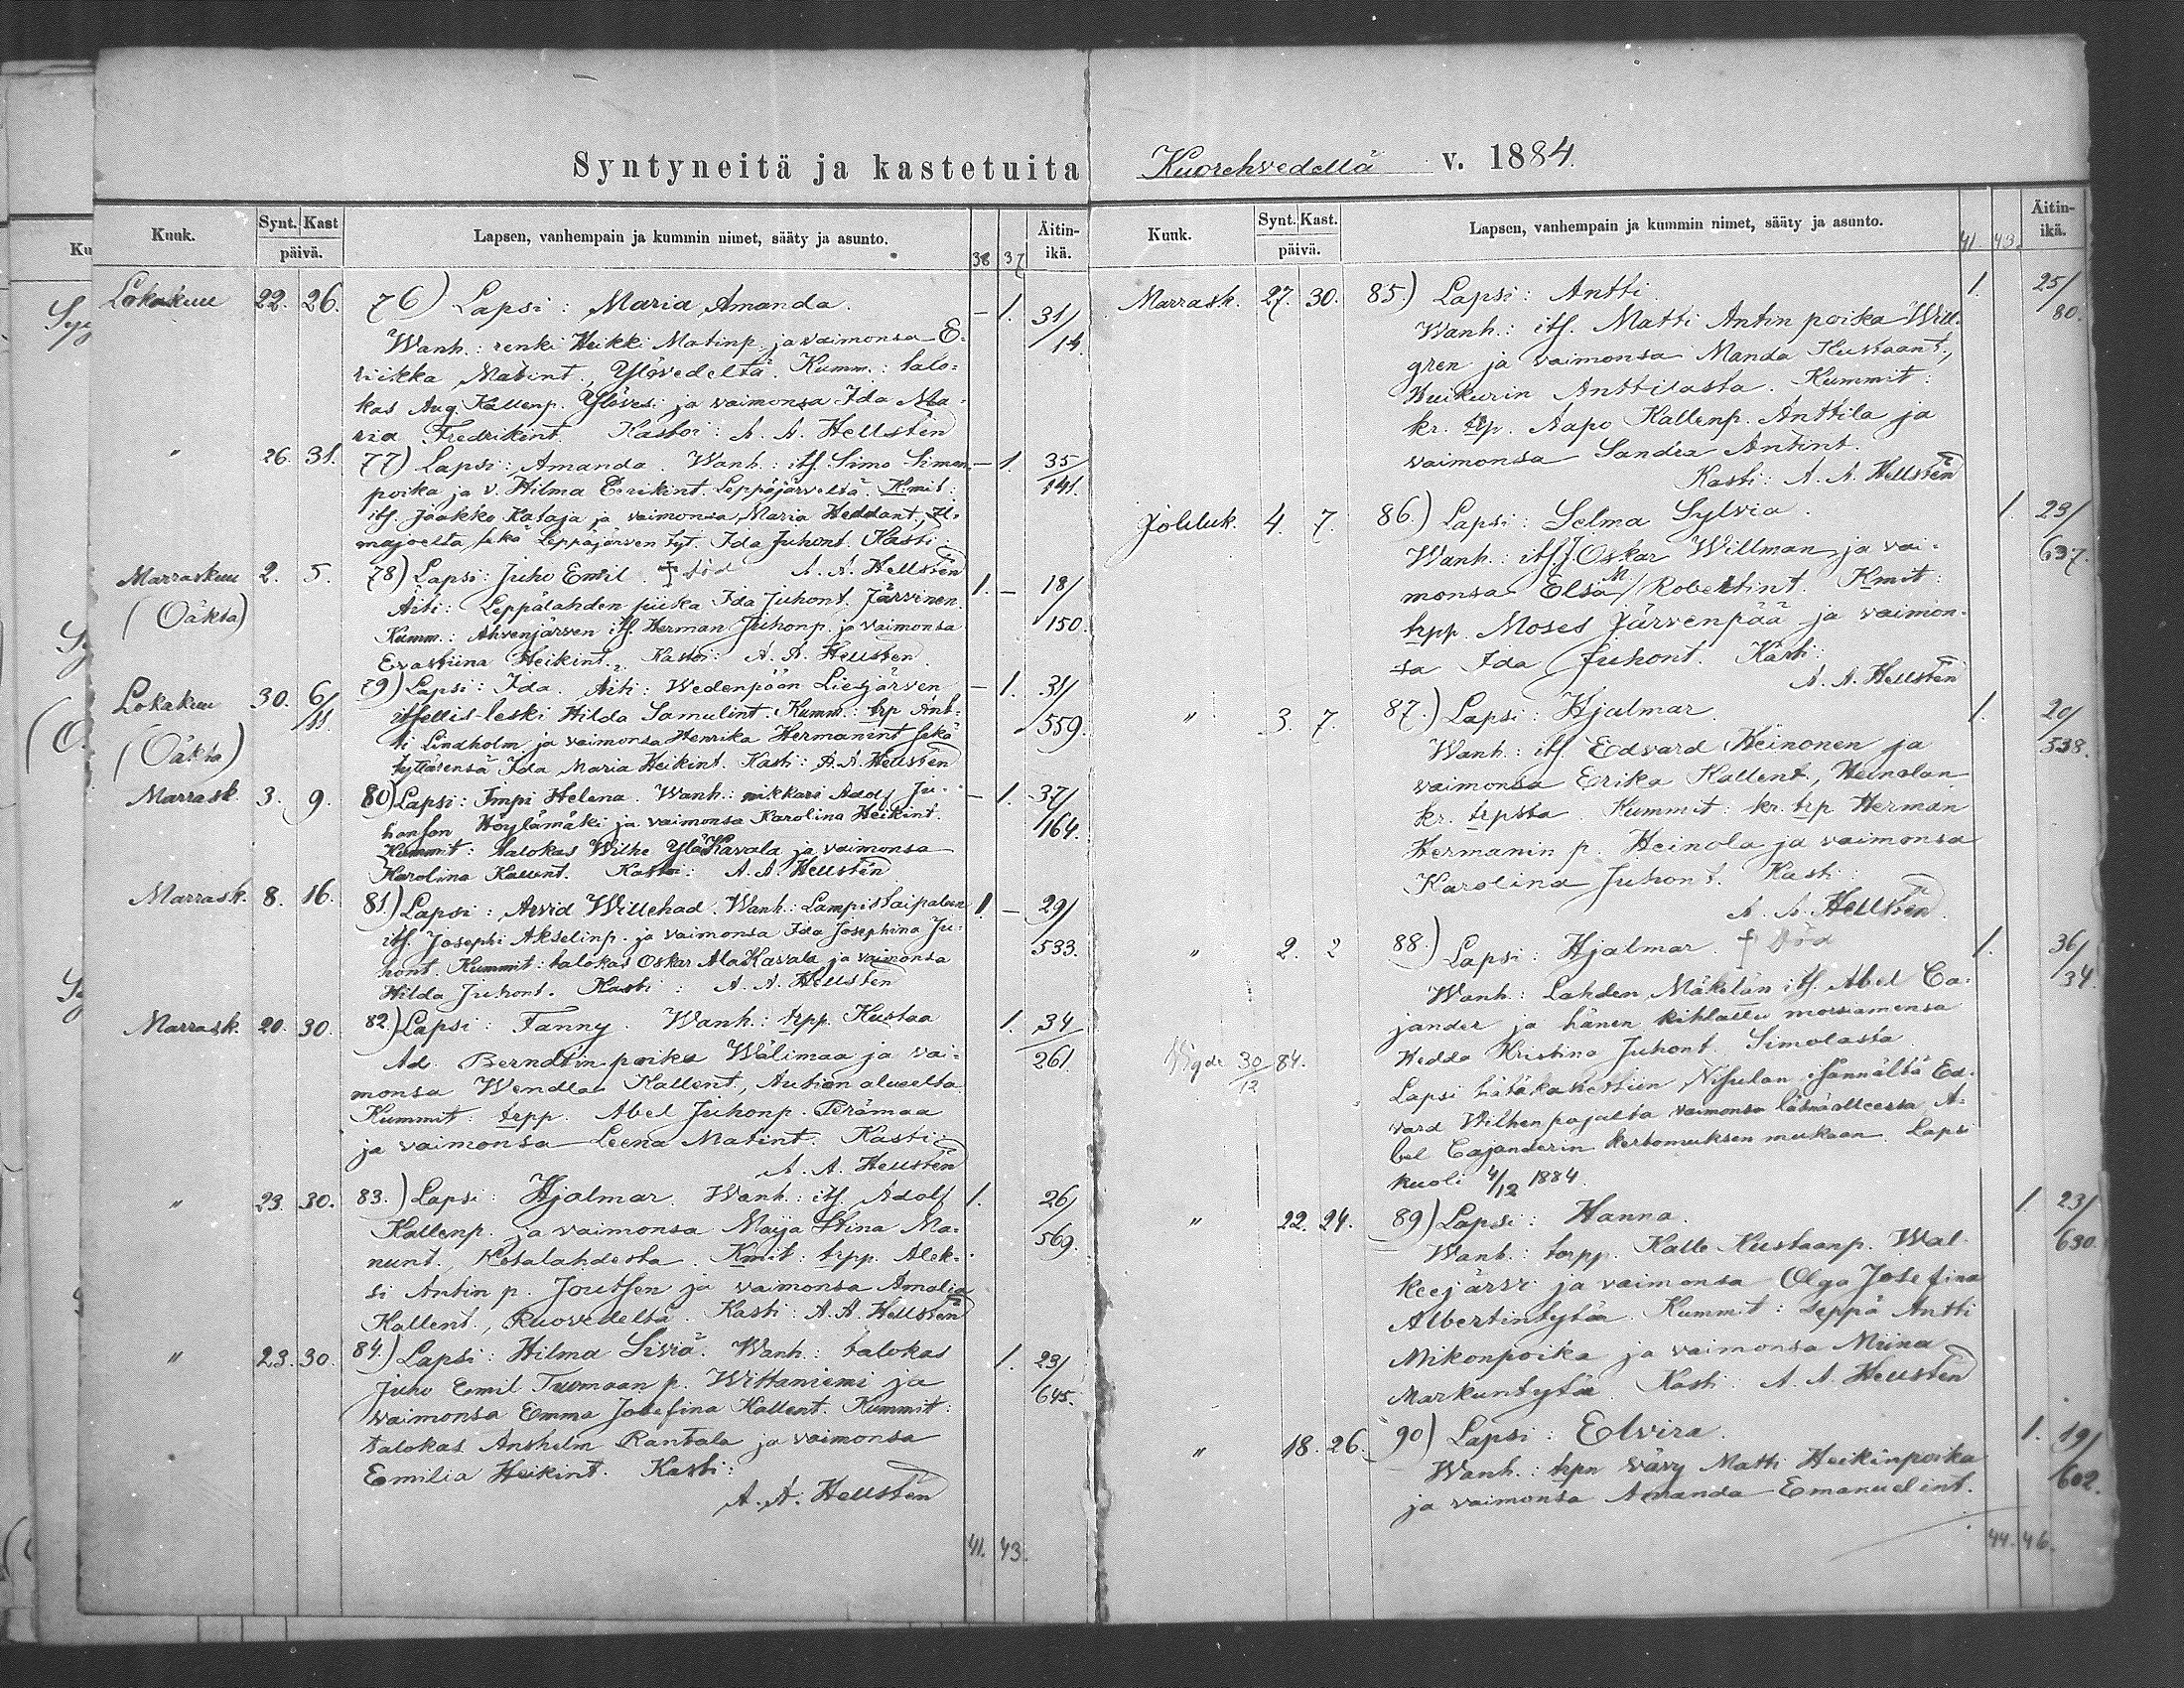 Syntyneitä ja kastetuita
Kuuk.
Synt. Kast
päivä.
Lapsen, vanhempain ja kummin nimet, sääty ja asunto.
38 37
Äitin-
ikä.
Lokakuu 22. 26. 76) Lapsi: Maria Amanda. — 1. 31/14.
Wanh.: renki Heikki Matinp. ja vaimonsa E-
riikka Matint., Ylövedeltä. Kumm.: talo-
kas Aug. Kallenp. Ylövesi ja vaimonsa Ida Ma-
ria Fredrikint. Kastoi: A. A. Hellstén
" 26. 31. 77) Lapsi: Amanda. Wanh.: itf. Simo Simon — 1. 35/141.
poika ja v. Hilma Eerikint. Leppäjärveltä. Kmit:
itf. Jaakko Kataja ja vaimonsa Maria Heddant., Il-
majoelta sekä Leppäjärven tyt. Ida Juhont. Kasti:
A. A. Hellstén
Marraskuu 2. 5. 78) Lapsi: Juho Emil. † död 1. — 18/150.
(Oäkta) Äiti: Leppälahden piika Ida Juhont. Järvinen.
Kumm.: Ahvenjärven itf. Herman Juhonp. ja vaimonsa
Evastiina Heikint. Kastoi: A. A. Hellstén.
Lokakuu 30. 6/11. 79) Lapsi: Ida. Äiti: Wedenpään Liesjärven — 1. 31/559.
(Oäkta) itsellis-leski Hilda Samulint. Kumm.: trp Ant-
ti Lindholm ja vaimonsa Henrika Hermanint sekä
tyttärensä Ida Maria Heikint. Kasti: A. A. Hellstén
Marrask. 3. 9. 80) Lapsi: Impi Helena. Wanh.: nikkari Adolf Ju- — 1. 37/164.
hanson Höylämäki ja vaimonsa Karolina Heikint.
Kummit: talokas Wilhe YläKavala ja vaimonsa
Karolina Kallent. Kastoi: A. A. Hellstén
Marrask. 8. 16. 81) Lapsi: Arvid Willehad. Wanh.: Lampistaipaleen 1. — 29/533.
itf. Josephi Akselinp. ja vaimonsa Ida Josephina Ju-
hont. Kummit: talokas Oskar AlaKavala ja vaimonsa
Hilda Juhont. Kasti: A. A. Hellstén
Marrask. 20. 30. 82.) Lapsi: Fanny. Wanh.: trpp. Kustaa 1. 34/261.
Ad. Berndtin-poika Wälimaa ja vai-
monsa Wendla Kallent., Aution alueelta
Kummit: trpp. Abel Juhonp. Perämaa
ja vaimonsa Leena Matint. Kasti:
A. A. Hellstén
" 23. 30. 83.) Lapsi: Hjalmar. Wanh.: itf. Adolf 1. 26/569.
Kallenp. ja vaimonsa Maija Stina Ma-
nunt., Kotalahdesta. Kmit: trpp. Alek-
si Antin p. Joutsen ja vaimonsa Amalia
Kallent., Ruovedeltä. Kasti: A. A. Hellstén
" 23. 30. 84.) Lapsi: Hilma Siviä. Wanh.: talokas 1. 23/645.
Juho Emil Tuomaan p. Wittaniemi ja
vaimonsa Emma Josefina Kallent. Kummit:
talokas Anshelm Rantala ja vaimonsa
Emilia Heikint. Kasti:
A. A. Hellstén
41. 43.
Kuorehvedellä v. 1884.
Kuuk.
Synt. Kast.
päivä.
Lapsen, vanhempain ja kummin nimet, sääty ja asunto.
41 43.
Äitin-
ikä.
Marrask. 27. 30. 85.) Lapsi: Antti. 1. 25/80.
Wanh.: itf. Matti Antin poika Will-
gren ja vaimonsa Manda Kustaant.,
Huikurin Anttilasta. Kummit:
kr. trp. Aapo Kallenp. Anttila ja
vaimonsa Sandra Antint.
Kasti: A. A. Hellstén
Jouluk. 4. 7. 86.) Lapsi: Selma Sylvia. 1. 23/637.
Wanh.: itf. J. Oskar Willman ja vai-
monsa Elsa M/ Robertint. Kmit:
trpp. Moses Järvenpää ja vaimon-
sa Ida Juhont. Kasti:
A. A. Hellstén
" 3. 7. 87.) Lapsi: Hjalmar. 1. 20/538.
Wanh.: itf. Edvard Heinonen ja
vaimonsa Erika Kallent., Heinolan
kr. trpsta. Kummit: kr. trp Herman
Hermanin p. Heinola ja vaimonsa
Karolina Juhont. Kasti:
A. A. Hellstén.
" 2. 2 88.) Lapsi: Hjalmar. † Död 1. 36/34
Wanh.: Lahden Mäkelän itf. Abel Ca-
jander ja hänen kihlattu morsiamensa
30/12 84. Hedda Kristina Juhont. Simolasta
Lapsi hätäkastettiin Nisulan isännältä Ed-
vard Wilhenpojalta vaimonsa läsnäolleessa A-
bel Cajanderin kertomuksen mukaan. Lapsi
kuoli 4/12 1884.
" 22. 24. 89) Lapsi: Hanna. 1 23/630.
Wanh.: torpp. Kalle Kustaanp. Wal-
keejärvi ja vaimonsa Olga Josefina
Albertintytär. Kummit: seppä Antti
Mikonpoika ja vaimonsa Miina
Markuntytär. Kasti A. A. Hellstén
" 18. 26. 90) Lapsi: Elvira. 1. 19/602.
Wanh.: trpn vävy Matti Heikinpoika
ja vaimonsa Amanda Emanuelint.
44. 46.